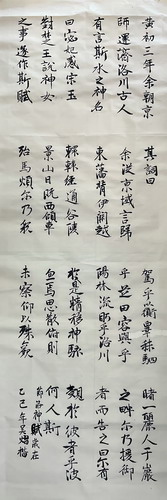 黄初三年余朝京
師還濟洛川古人
有言斯水之神名
曰宓妃感宋玉
對楚王說神女
之事遂作斯賦
其詞曰
余從京域言歸
東藩背伊闕越
轘轅經通谷陵
景山日既西傾車
殆馬煩尔乃税
駕乎蘅皋秣駟
乎芝田容與乎
陽林流眄乎洛川
於是精移神駭
忽焉思散俯則
未察仰以殊觀
睹一麗人于巖
之畔尔乃援御
者而告之曰尔有
覿於彼者乎彼
何人斯
節洛神賦歲在
乙巳年吴